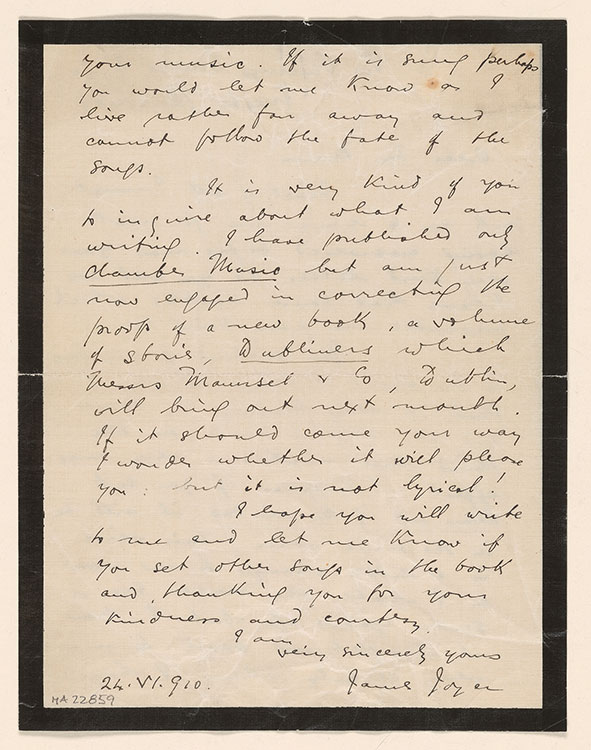 your music. If it is sung perhaps
you would let me know as I
live rather far away and
cannot follow the fate of the
songs.
It is very kind of you
to inquire about what I am
writing. I have published only
Chamber Music but am just
now engaged in correcting the
proofs of a new book, a volume
of stories, Dubliners which
Messrs Maunsel & Co, Dublin,
will bring out next month.
If it should come your way
I wonder whether it will please
you: but it is not lyrical!
I hope you will write
to me and let me know if
you set other songs in the book
and, thanking you for your
kindness and courtesy
I am
very sincerely yours
James Joyce
24.VI.910.
MA 22859